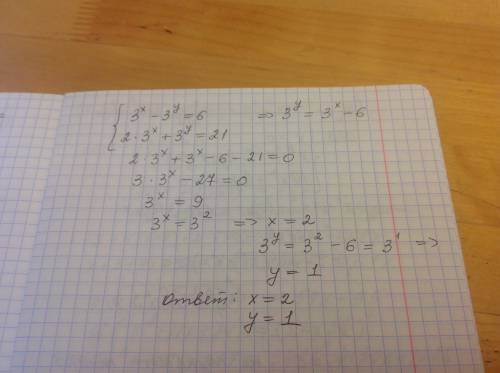 3^x - 3^y = 6 => 3^y = 3^x - 6
2 · 3^x + 3^y = 21
2 · 3^x + 3^x - 6 - 21 = 0
3 · 3^x - 27 = 0
3^x = 9
3^x = 3^2 => x = 2
3^y = 3^2 - 6 = 3^1 =>
y = 1
Ответ: x = 2
y = 1